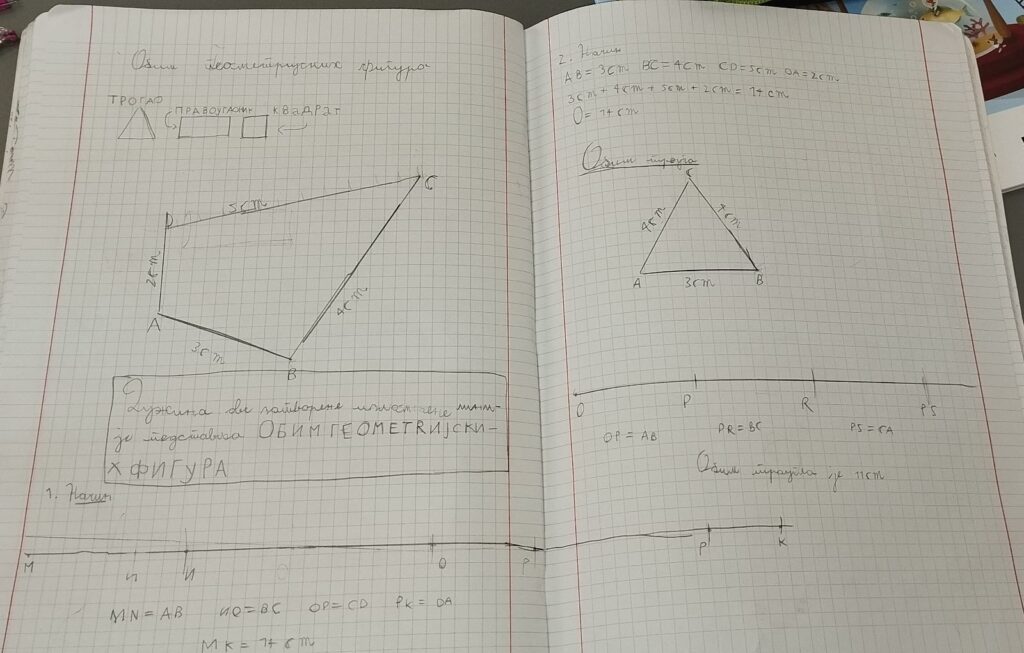 Обим геометријских фигура
ТРОГАО
ПРАВОУГАОНИ
КВАДРАТ
D
5cm
C
2cm
A
3cm
B
4cm
Дужина све затворене изломљене лини-
је
ОБИМ ГЕОМЕТRИЈСКИ-
Х ФИГУРА
1. Начин
M
И
O
P
MN = AB ИO = BC OP = CD PK = DA
MK = 14cm
2. Начин
AB = 3cm BC = 4cm CD = 5cm DA = 2cm
3cm + 4cm + 5cm + 2cm = 14cm
O = 14cm
Обим
C
4cm
4cm
A
3cm
B
O
P
R
PS
OP = AB
PR = BC
PS = CA
Обим троугла је 11cm
P
K